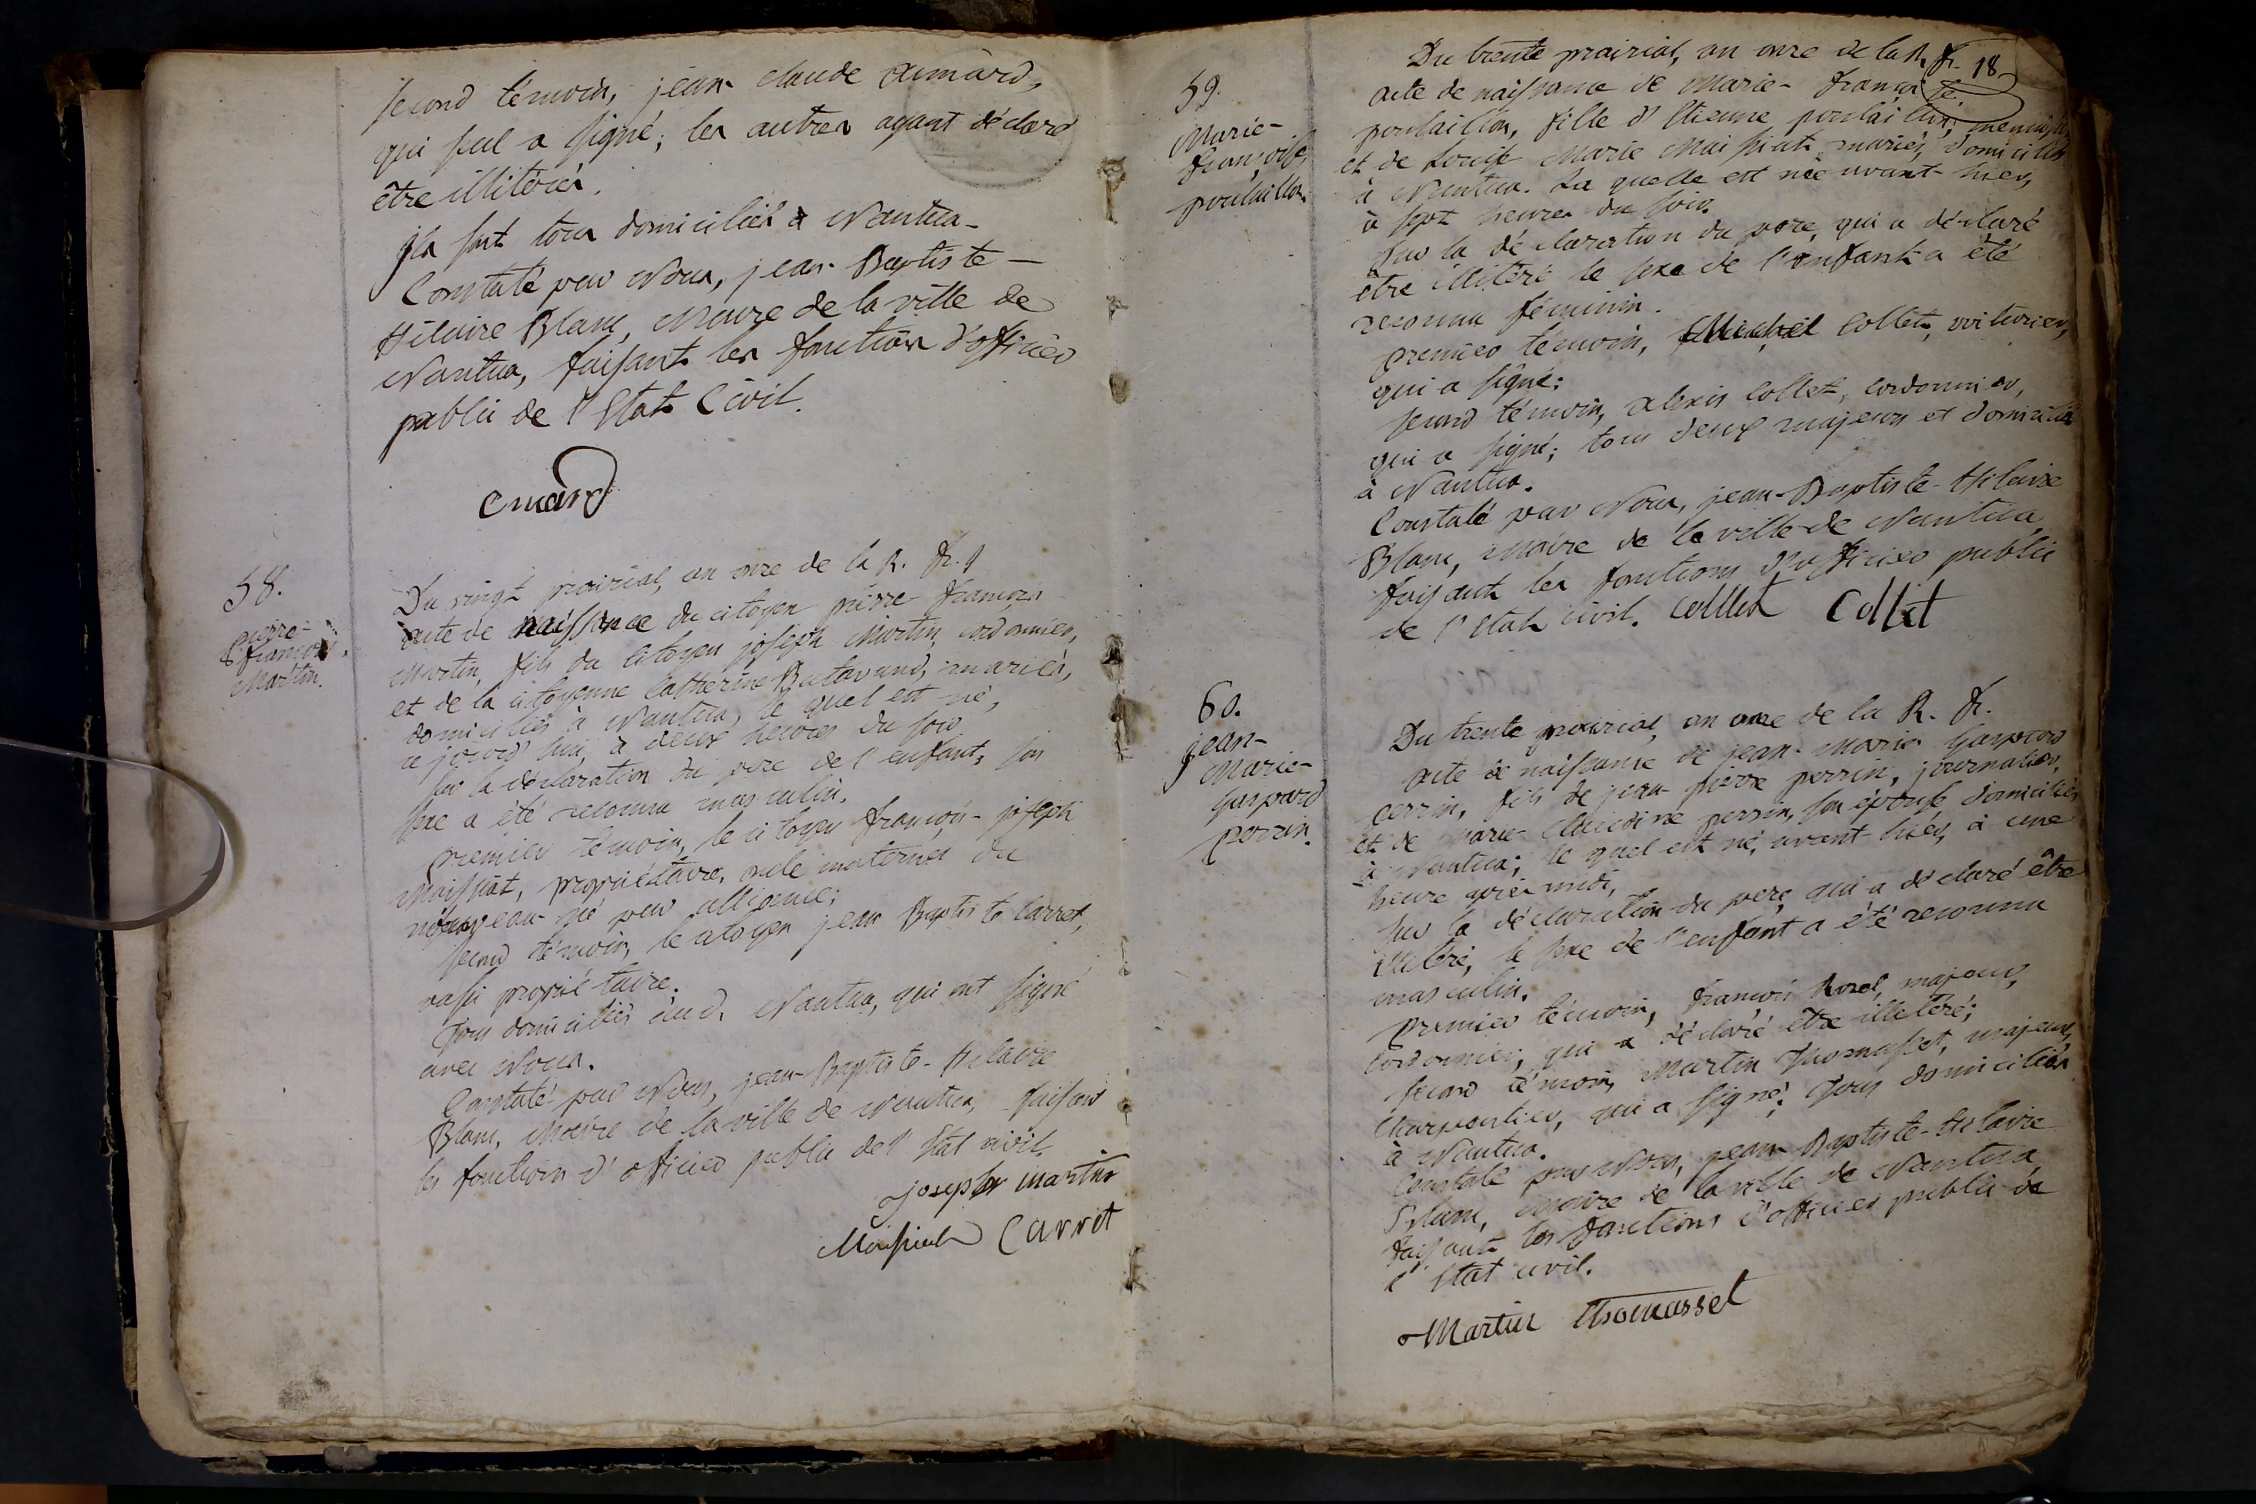 second témoin, jean claude Aimard,
qui seul a signé; les autres ayant déclaré
être illitérés.
Ils sont tous domiciliés à Nantua.
Constaté par Nous, jean Baptiste
Hilaire Blanc, Maire de la ville de
Nantua, faisant les fonctions d'officier
public de l'Etat Civil.
emard
58.
pierre-
françois
Martin.
Du vingt prairial, an onze de la R. fr.
acte de naissance du citoyen pierre françois
Martin, fils du citoyen joseph Martin, cordonnier,
et de la citoyenne Catherine mariés,
domiciliés à Nantua, le quel est né,
ce jourd'hui, à deux heures du soir
sur la déclaration du père de l'enfant, son
sexe a été reconnu masculin.
premier témoin, le citoyen françois-joseph
Maissiat, propriétaire, oncle maternel du
nouveau-né par alliance;
second témoin, le citoyen jean Baptiste Carret,
aussi propriétaire.
Tous domiciliés aud. Nantua, qui ont signé
avec Nous.
Constaté par Nous, jean-Baptiste-Hilaire
Blanc, Maire de la ville de Nantua, faisant
les fonctions d'officier public de l'Etat civil.
joseph martin
Maissiat Carret
18
59.
Marie-
françoise
poulaillon
Du trente prairial, an onze de la R. fr.
acte de naissance de Marie-françoise
poulaillon, fille d'Etienne poulaillon, menuisier
et de Louise Marie Maissiat mariés, domiciliés
à Nantua. La quelle est née avant-hier,
à sept heures du soir.
Sur la déclaration du père, qui a déclaré
être illitéré le sexe de l'enfant a été
reconnu féminin.
premier témoin, Michel Collet, voiturier,
qui a signé;
second témoin, alexis Collet, cordonnier,
qui a signé; tous deux majeurs et domiciliés
à Nantua.
Constaté par Nous, jean-Baptiste-Hilaire
Blanc, Maire de la ville de Nantua
faisant les fonctions d'officier public
de l'Etat civil. collet Collet
60.
jean-
Marie-
Gaspard
perrin.
Du trente prairial, an onze de la R. fr.
acte de naissance de jean-Marie Gaspard
perrin, fils de jean pierre perrin, journalier,
et de Marie Claudine perrin, son épouse domiciliés
à Nantua; le quel est né, avant-hier, à une
heure après midi,
Sur la déclaration du père, qui a déclaré être
illitéré, le sexe de l'enfant a été reconnu
masculin.
premier témoin, françois Rozel, majeur,
Cordonnier, qui a déclaré être illitéré;
second témoin, Martin Thomasset, majeur,
Charpentier, qui a signé; Tous domiciliés
à Nantua.
Constaté par Nous, jean Baptiste-Hilaire
Blanc, Maire de la ville de Nantua
faisant les fonctions d'officier public de
l'Etat civil.
Martin Thomasset